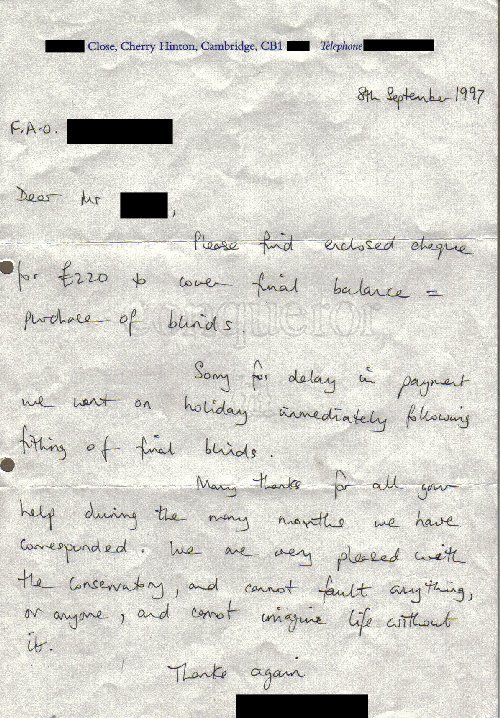 Close, Cherry Hinton, Cambridge, CB1 Telephone
8th September 1997
F.A.O.
Dear Mr ,
Please find enclosed cheque
for £220 to cover final balance =
purchase of blinds.
conqueror
Sorry for delay in payment
we went on holiday immediately following
fitting of final blinds.
Many thanks for all your
help during the many months we have
corresponded. We are very pleased with
the conservatory, and cannot fault anything,
or anyone, and cannot imagine life without
it.
Thanks again